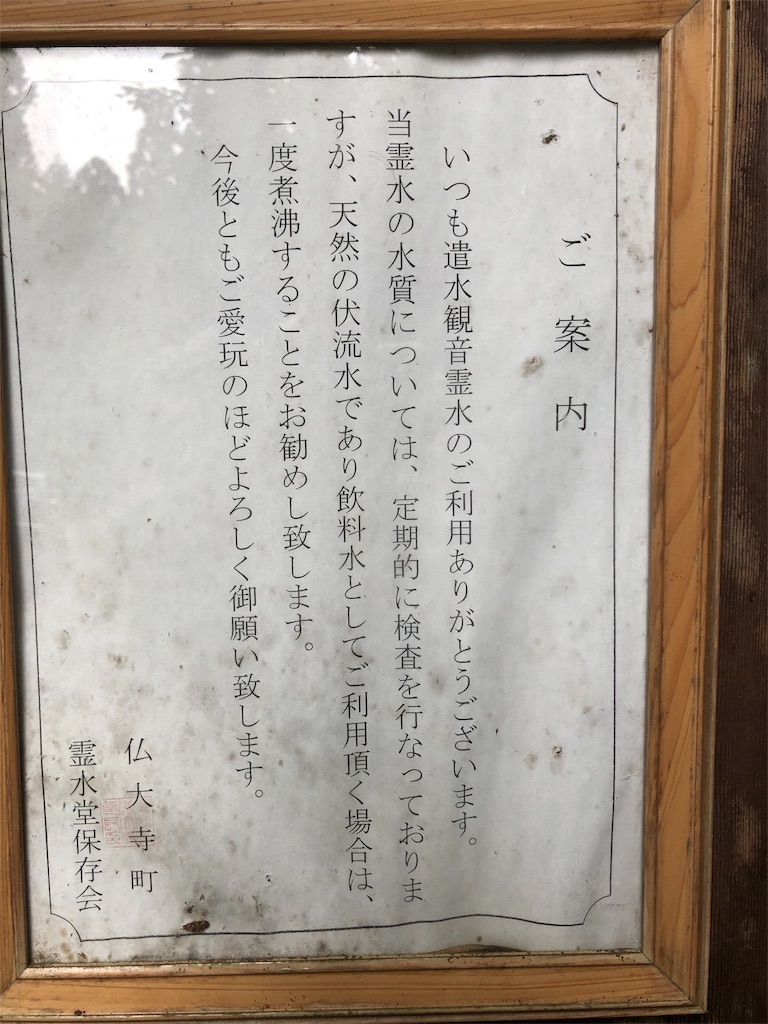 ご案内
いつも遣水観音霊水のご利用ありがとうございます。
当霊水の水質については、定期的に検査を行なっておりま
すが、天然の伏流水であり飲料水としてご利用頂く場合は、
一度煮沸することをお勧めし致します。
今後ともご愛玩のほどよろしく御願い致します。
仏大寺町
霊水堂保存会